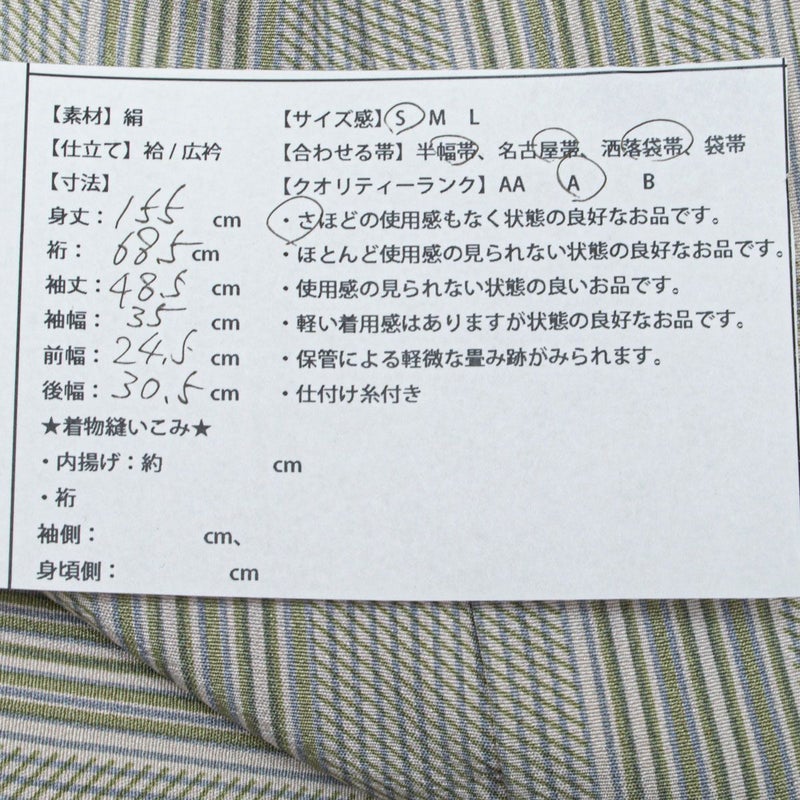 【素材】絹
【仕立て】袷 / 広衿
【寸法】
身丈：155 cm
裄： 68.5 cm
袖丈：48.5 cm
袖幅： 35 cm
前幅：24.5 cm
後幅：30.5 cm
★着物縫いこみ★
・内揚げ：約 cm
・裄
袖側： cm、
身頃側： cm
【サイズ感】S M L
【合わせる帯】半幅帯、名古屋帯、洒落袋帯、袋帯
【クオリティーランク】AA A B
・さほどの使用感もなく状態の良好なお品です。
・ほとんど使用感の見られない状態の良好なお品です。
・使用感の見られない状態の良いお品です。
・軽い着用感はありますが状態の良好なお品です。
・保管による軽微な畳み跡がみられます。
・仕付け糸付き